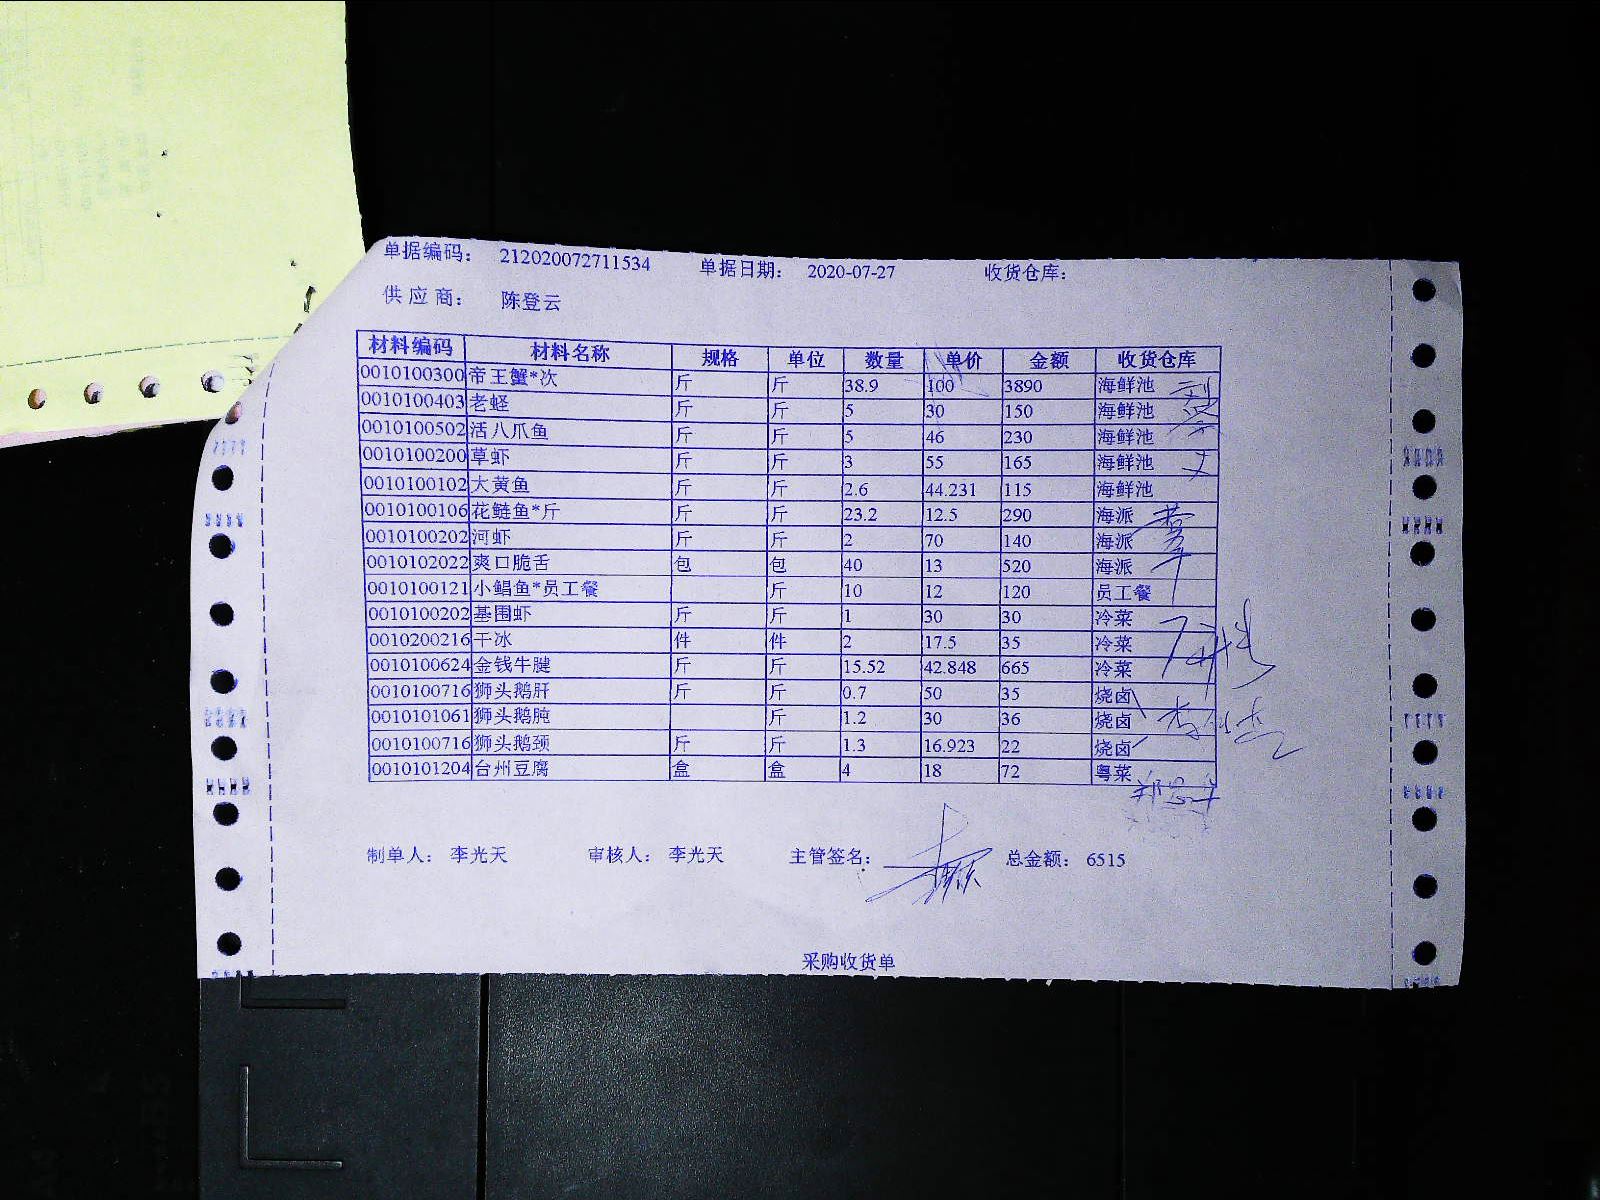 单据编码： 212020072711534 单据日期： 2020-07-27 收货仓库：
供 应 商： 陈登云
材料编码 材料名称 规格 单位 数量 单价 金额 收货仓库
0010100300 帝王蟹*次 斤 斤 38.9 100 3890 海鲜池
0010100403 老蛏 斤 斤 5 30 150 海鲜池
0010100502 活八爪鱼 斤 斤 5 46 230 海鲜池
0010100200 草虾 斤 斤 3 55 165 海鲜池
0010100102 大黄鱼 斤 斤 2.6 44.231 115 海鲜池
0010100106 花鲢鱼*斤 斤 斤 23.2 12.5 290 海派
0010100202 河虾 斤 斤 2 70 140 海派
0010102022 爽口脆舌 包 包 40 13 520 海派
0010100121 小鲳鱼*员工餐 斤 10 12 120 员工餐
0010100202 基围虾 斤 斤 1 30 30 冷菜
0010200216 干冰 件 件 2 17.5 35 冷菜
0010100624 金钱牛腱 斤 斤 15.52 42.848 665 冷菜
0010100716 狮头鹅肝 斤 斤 0.7 50 35 烧卤
0010101061 狮头鹅肫 斤 1.2 30 36 烧卤
0010100716 狮头鹅颈 斤 斤 1.3 16.923 22 烧卤
0010101204 台州豆腐 盒 盒 4 18 72 粤菜
制单人： 李光天 审核人： 李光天 主管签名： 总金额： 6515
采购收货单